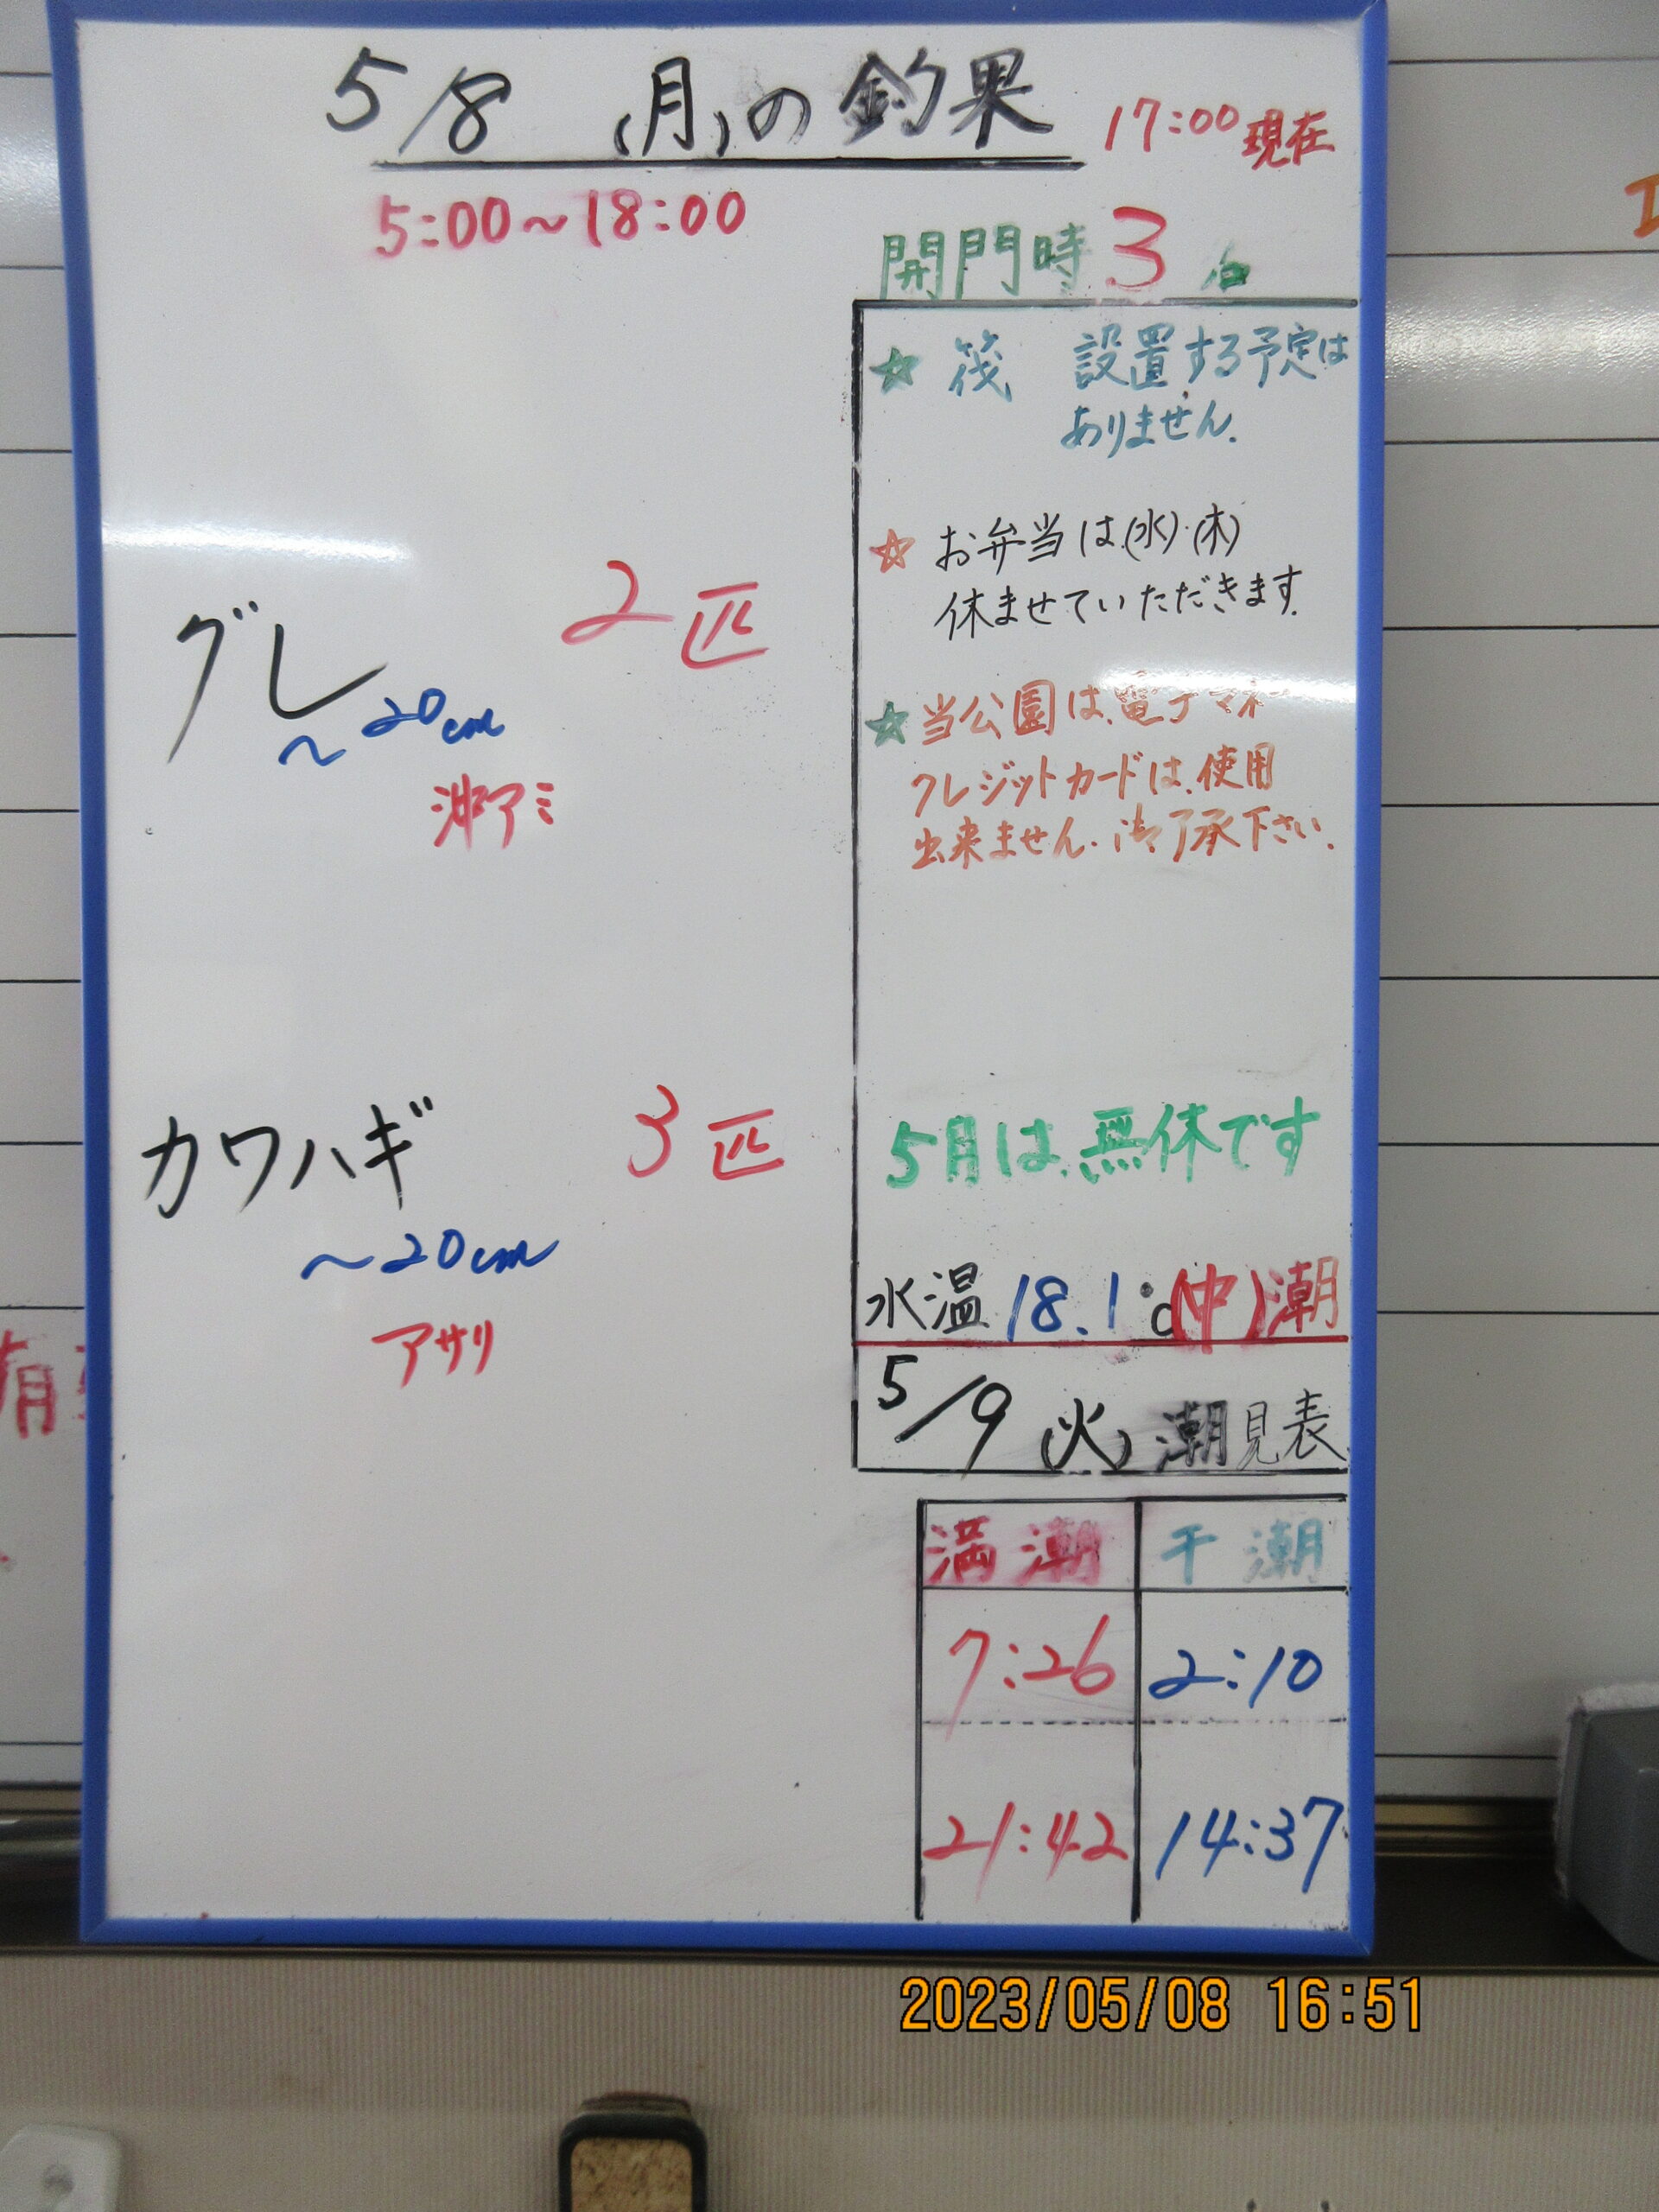 5/8 (月)の釣果
17:00現在
5:00~18:00
開門時 3名
☆ 筏 設置する予定は
ありません.
☆ お弁当は(水)・(木)
休ませていただきます.
☆ 当公園は、電子マネー
クレジットカードは、使用
出来ません. 御了承下さい.
グレ 2匹
~20cm
沖アミ
カワハギ 3匹
~20cm
アサリ
5月は、無休です
水温 18.1℃ (中)潮
5/9 (火) 潮見表
満潮 干潮
7:26 2:10
21:42 14:37
有
2023/05/08 16:51